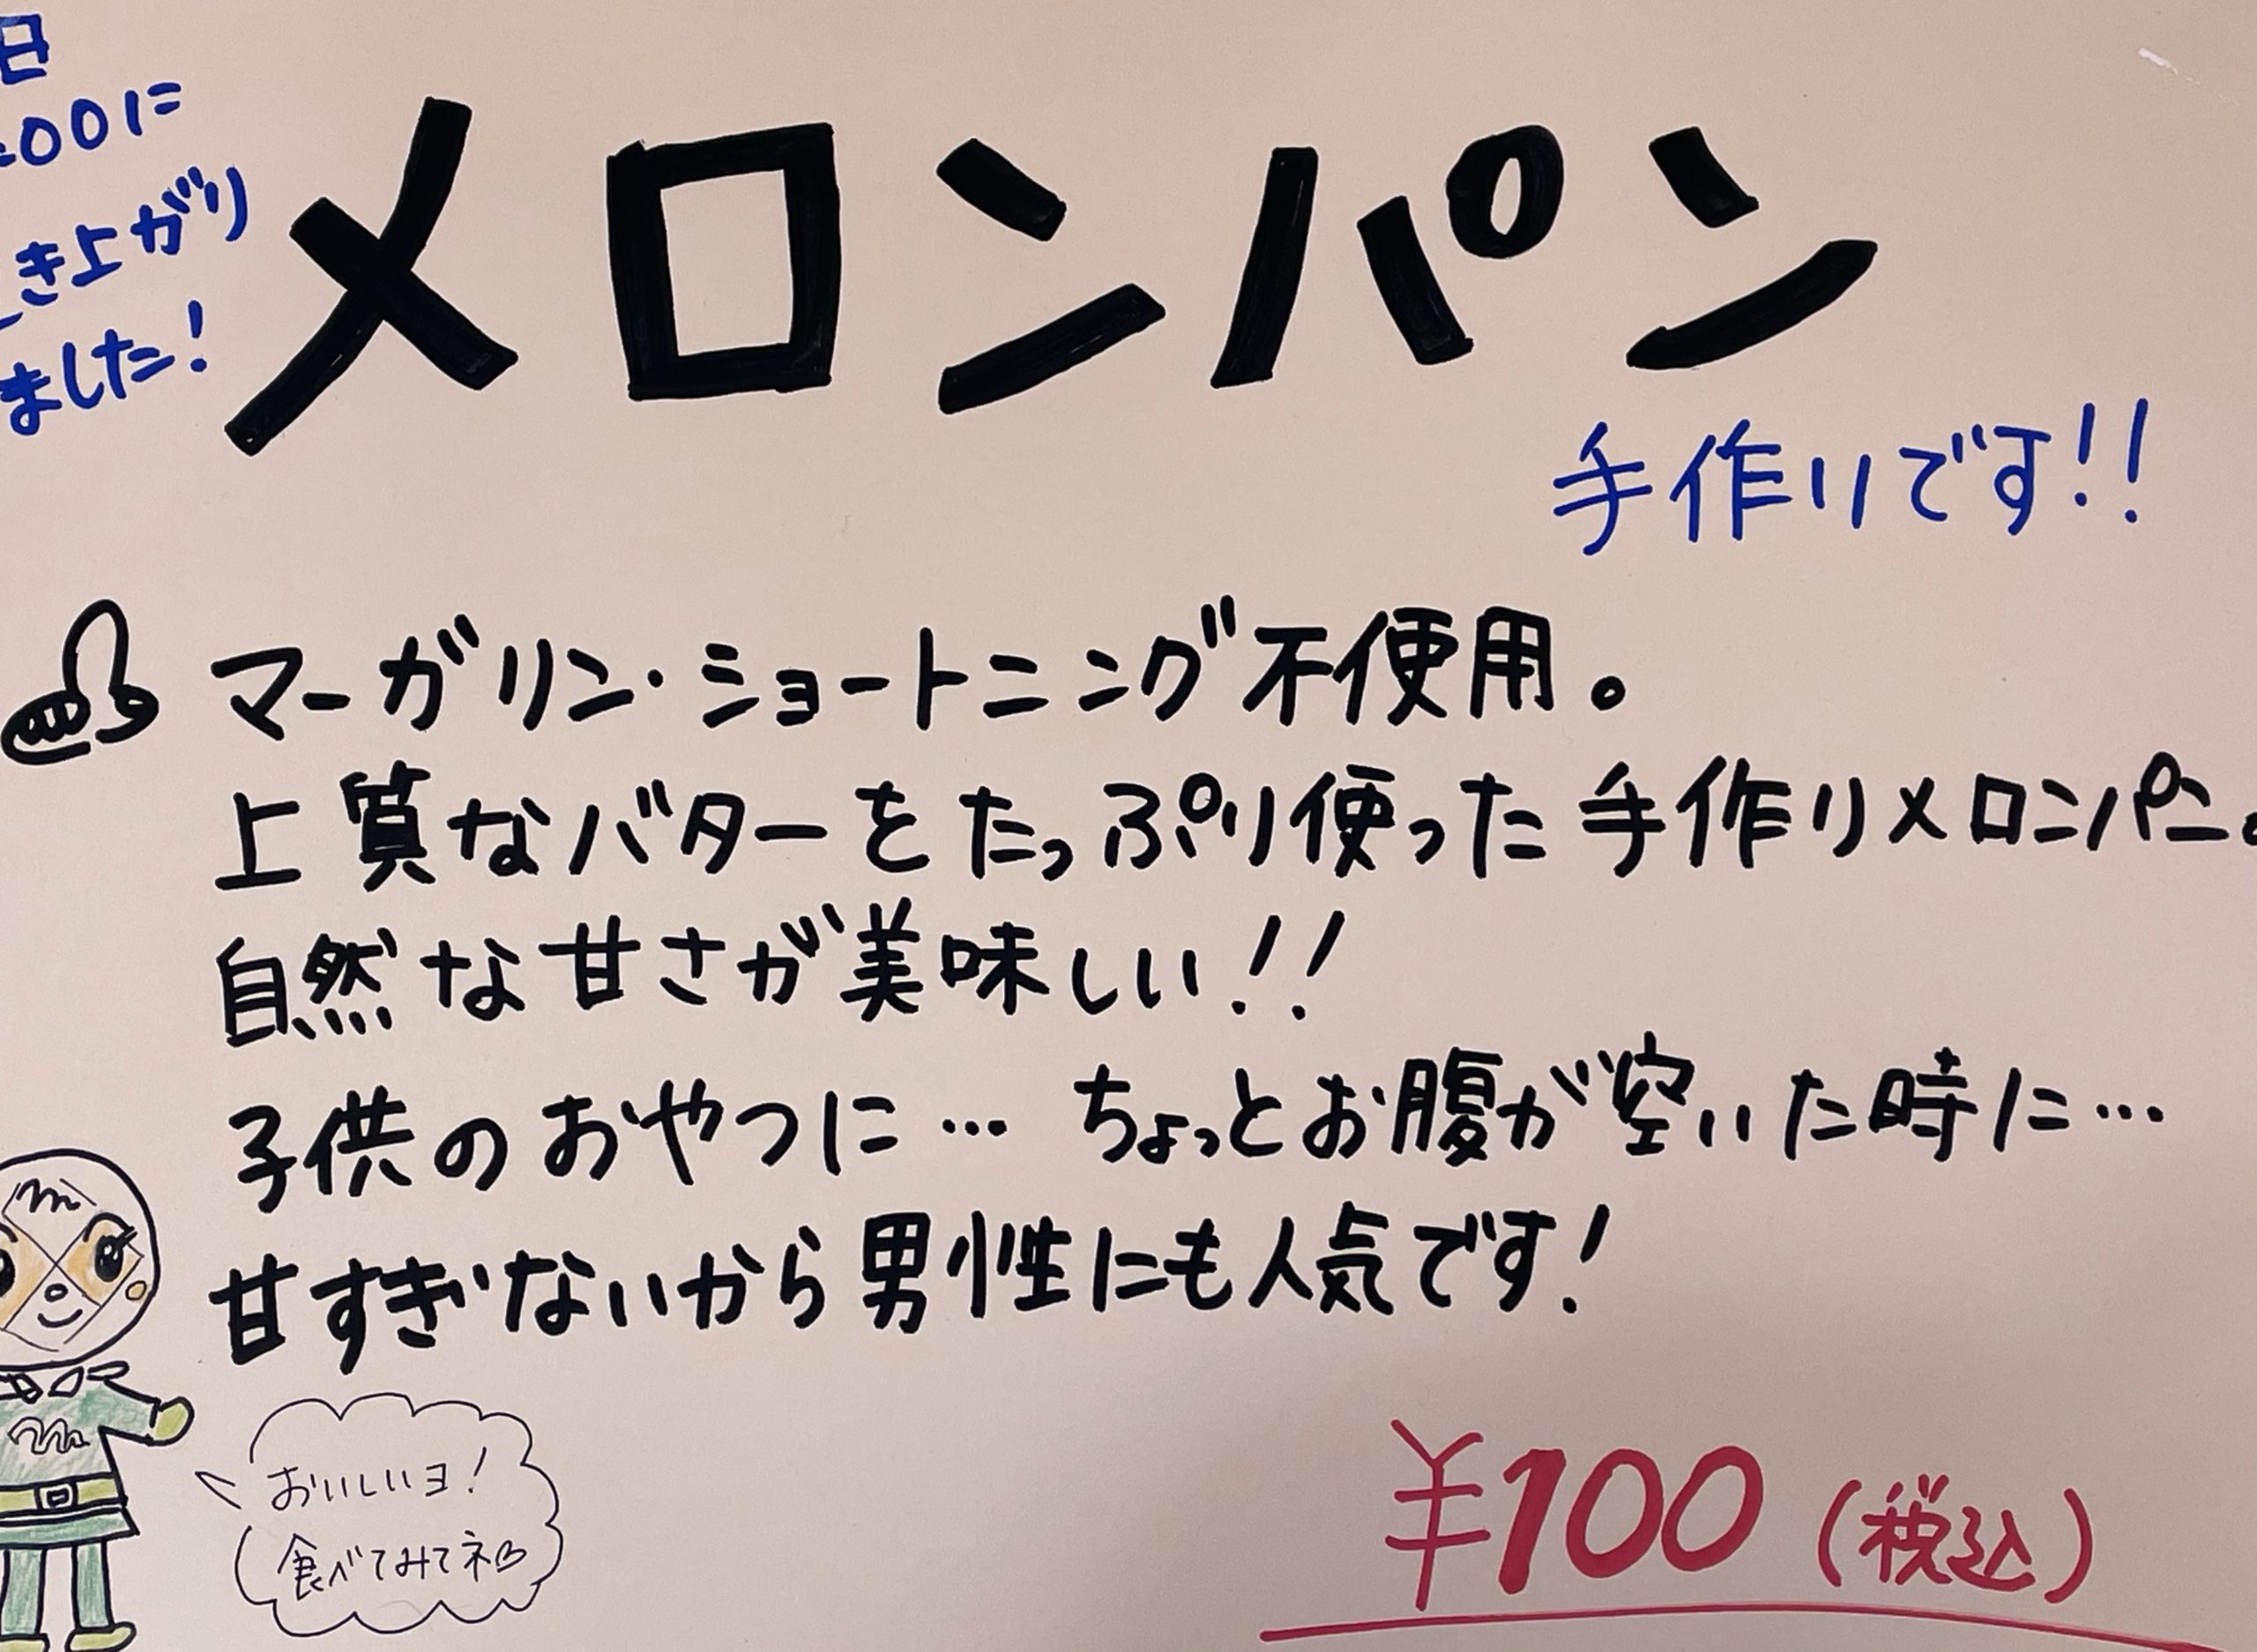 日
:00に
き上がり
ました!
メロンパン
手作りです!!
マーガリン・ショートニング不使用。
上質なバターをたっぷり使った手作りメロンパン。
自然な甘さが美味しい!!
子供のおやつに… ちょっとお腹が空いた時に…
甘すぎないから男性にも人気です!
m
おいしいヨ!
食べてみてネ♡
¥100(税込)